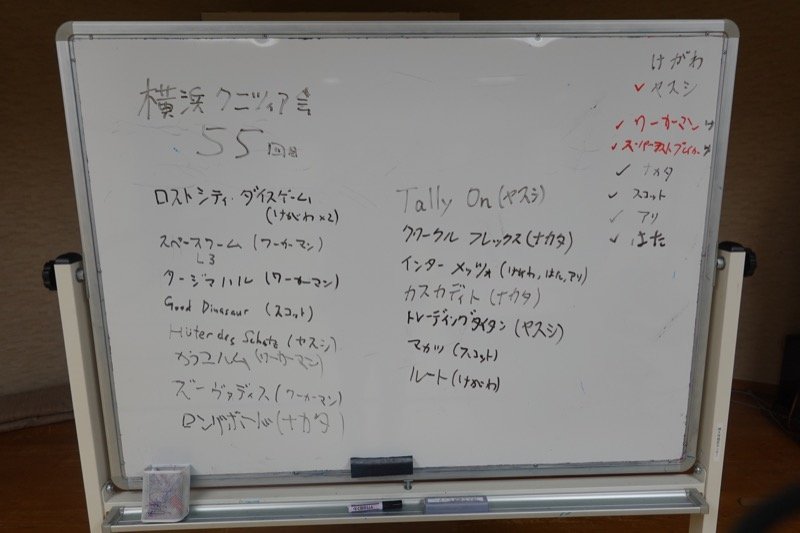 横浜 クニツィア会
55 回目
ロストシティ・ダイスゲーム
(けがわ×2)
スペースワーム (ワーカーマン)
L3
タージマハル (ワーカーマン)
Good Dinasaur (スコット)
Hüter des Schatz (ヤスシ)
カラコルム (ワーカーマン)
ズーヴァディス (ワーカーマン)
ロングボード (ナカタ)
Tally On (ヤスシ)
クワークル フレックス (ナカタ)
インターメッツォ (けがわ, はた, アリ)
カスカディト (ナカタ)
トレーディングタイタン (ヤスシ)
マカツ (スコット)
ルート (けがわ)
けがわ
✓ ヤスシ
✓ ワーカーマン
✓ スーパーラストブレイカー
✓ ナカタ
✓ スコット
✓ アリ
✓ はた